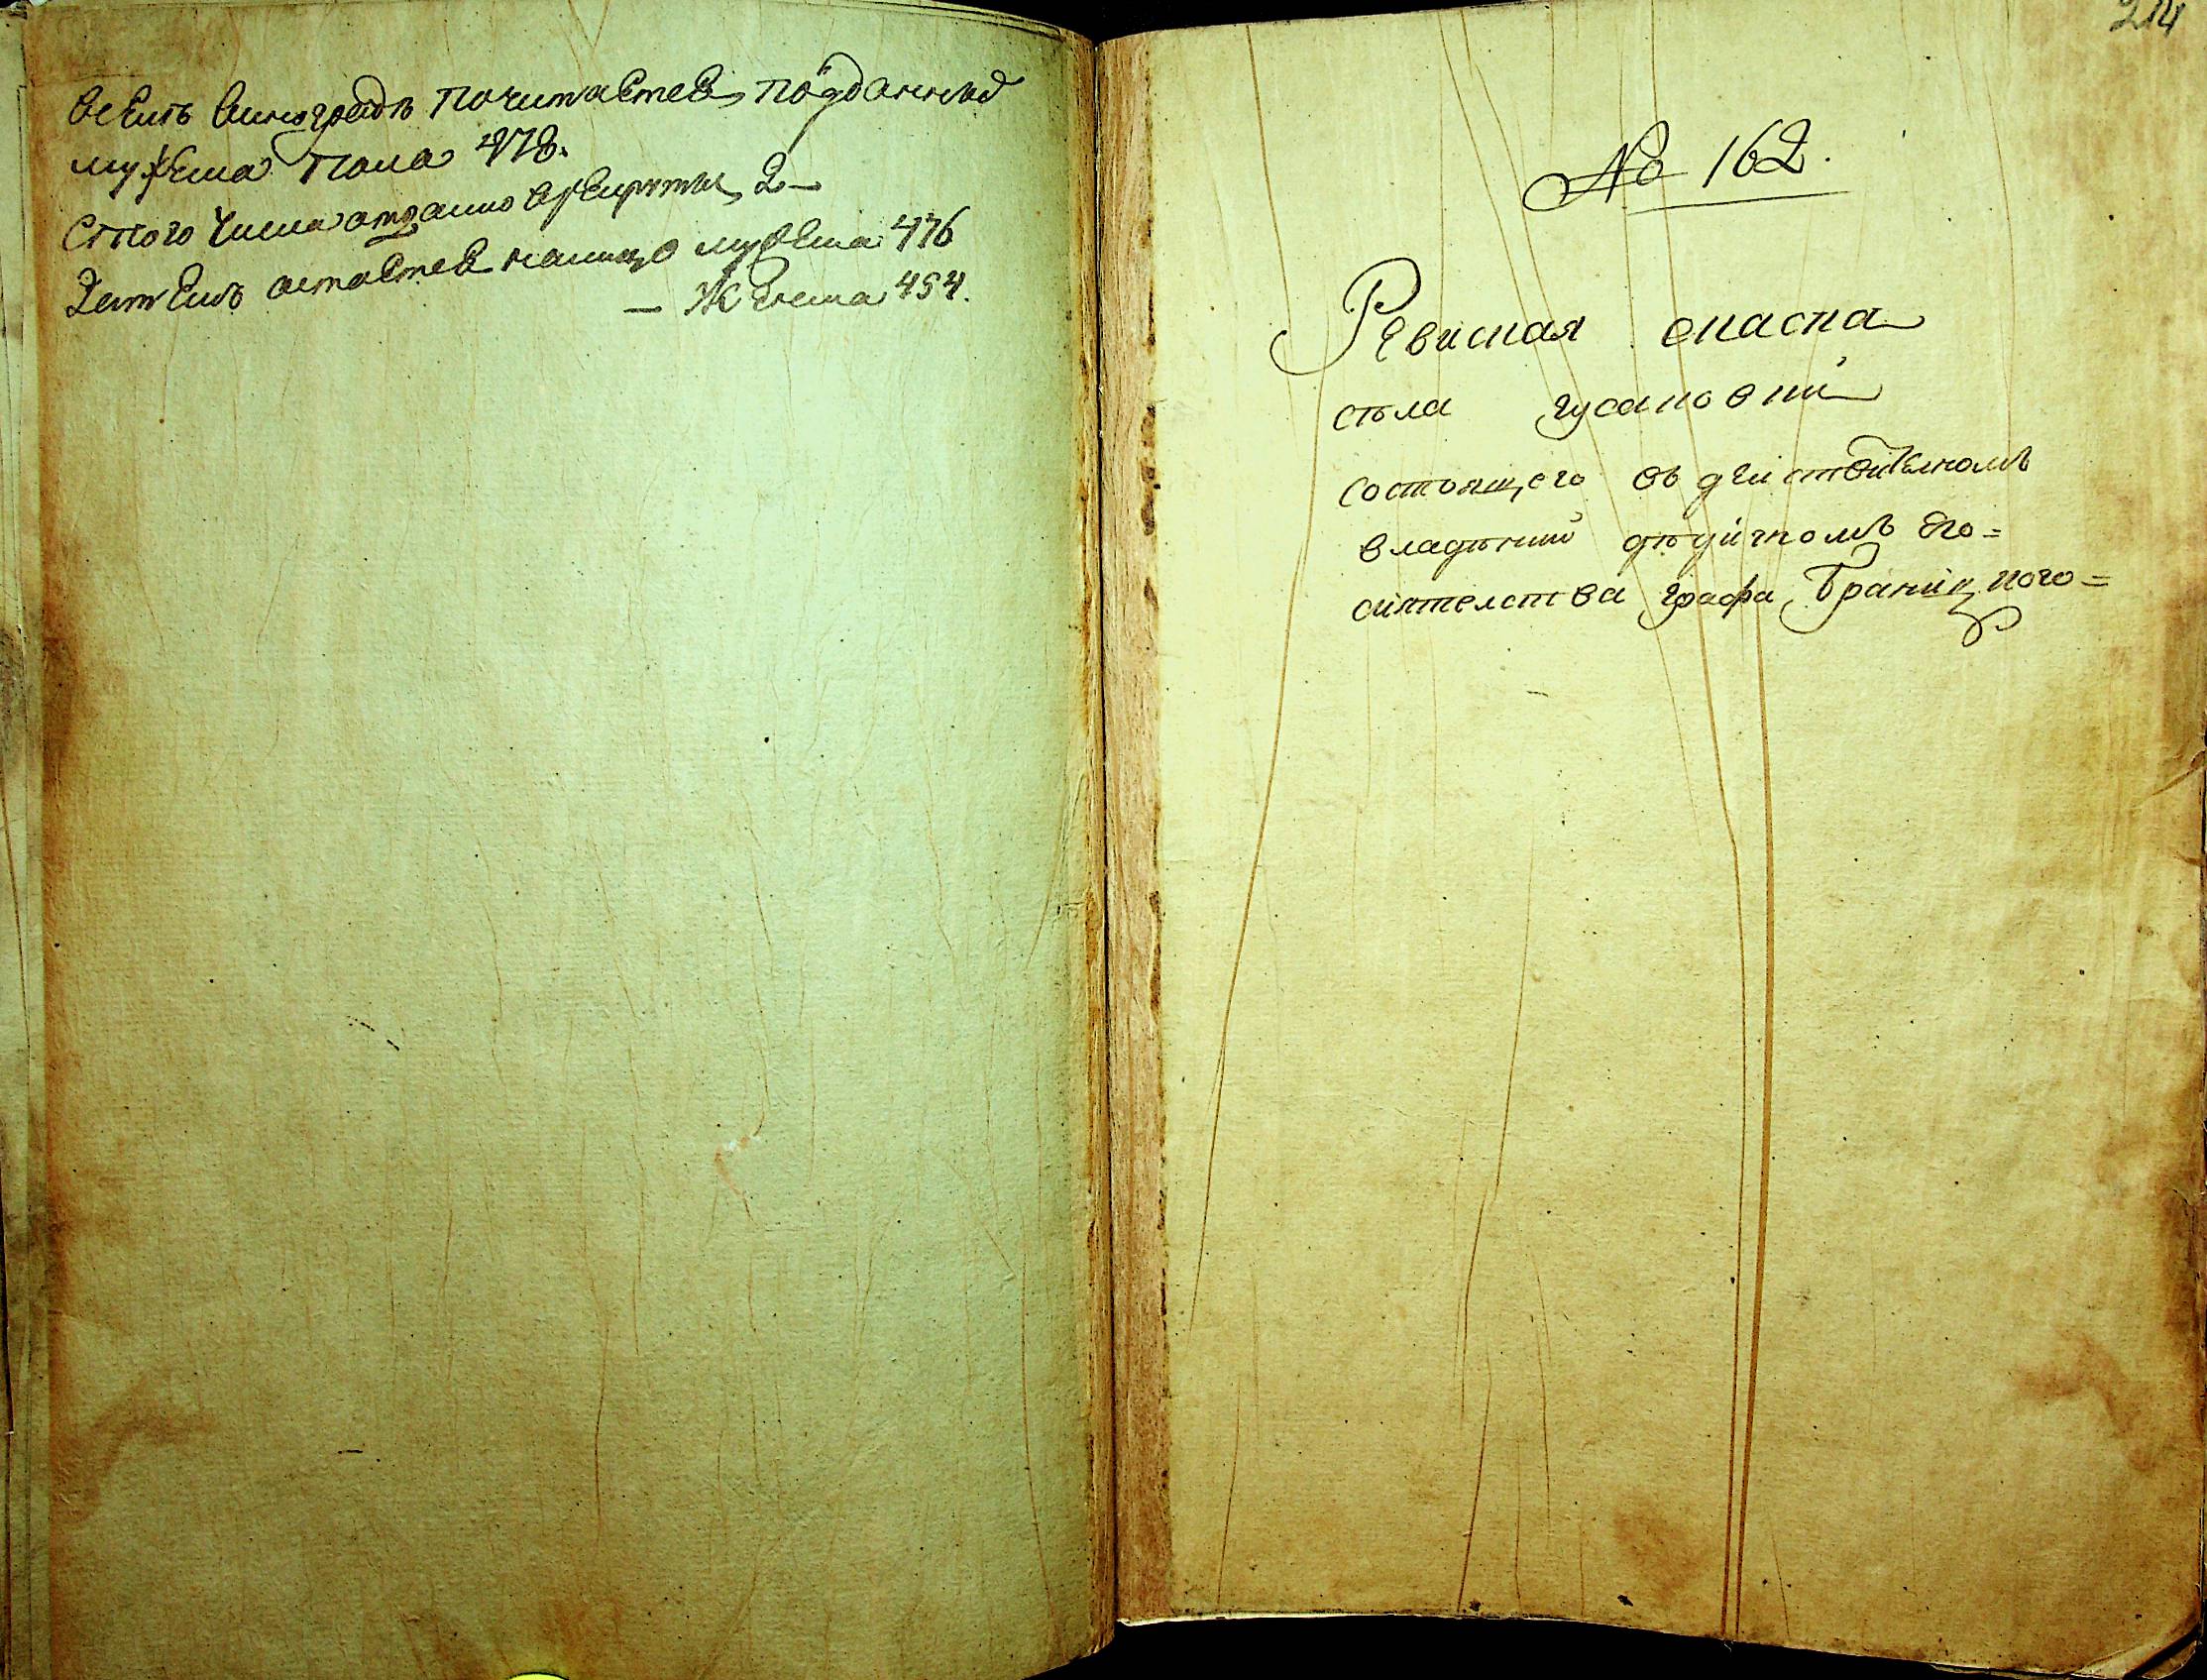 Селѣ Виноградѣ почитается подданныхъ
мужеска пола 478.
Стого числа отдано врекруты 2 —
Затемъ остается налицо мужеска 476
— Женска 454.
214
№ 162.
Ревиская скаска
сѣла гусаковки
состоящего въ деиствителномъ
владѣнии дѣдичномъ его=
сиятелства графа Браницкого=